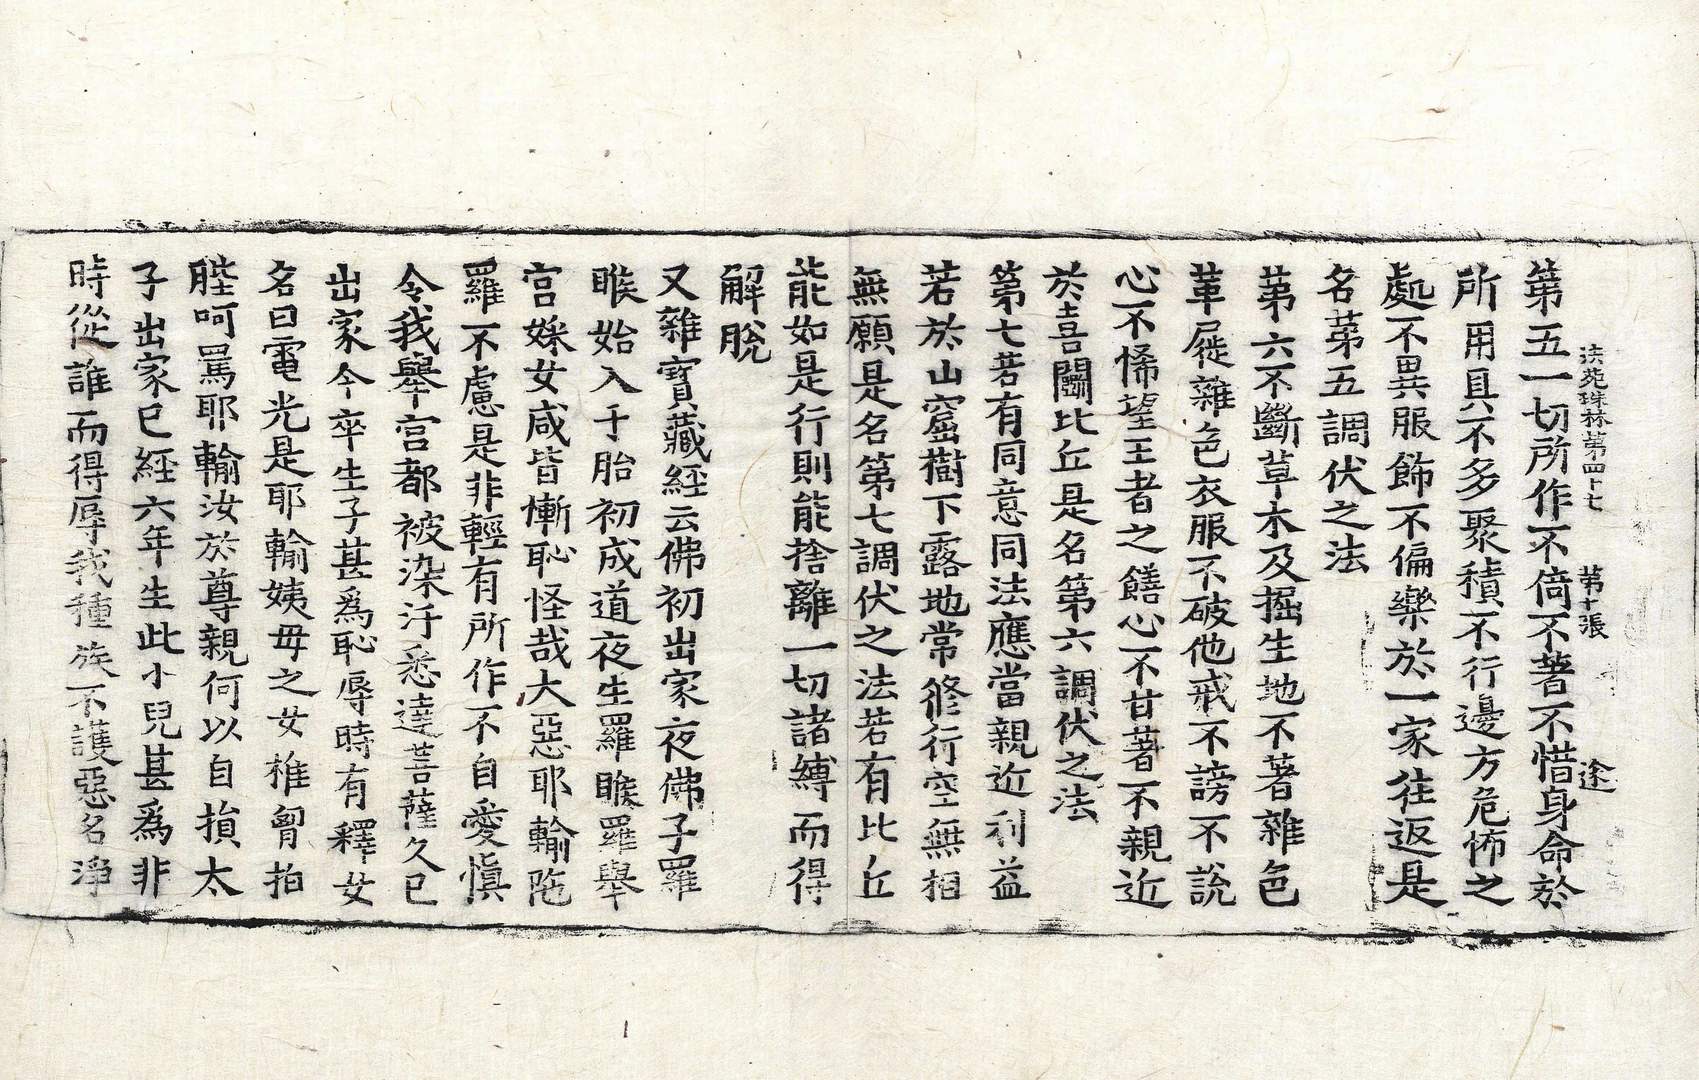 法苑珠林第四十七　第十張　逵
第五一切所作不倚不著不惜身命於
所用具不多聚積不行邊方危怖之
處不異服飾不偏樂於一家往返是
名第五調伏之法
第六不斷草木及掘生地不著雜色
革屣雜色衣服不破他戒不謗不說
心不悕望王者之饍心不甘著不親近
於喜鬪比丘是名第六調伏之法
第七若有同意同法應當親近利益
若於山窟樹下露地常修行空無相
無願是名第七調伏之法若有比丘
能如是行則能捨離一切諸縛而得
解脫
又雜寶藏經云佛初出家夜佛子羅
睺始入于胎初成道夜生羅睺羅舉
宮婇女咸皆慚恥怪哉大惡耶輸陁
羅不慮是非輕有所作不自愛愼
令我舉宮都被染汙悉達菩薩久已
出家今卒生子甚爲恥辱時有釋女
名曰電光是耶輸姨母之女椎胷拍
髀呵罵耶輸汝於尊親何以自損太
子出家已經六年生此小兒甚爲非
時從誰而得辱我種族不護惡名淨